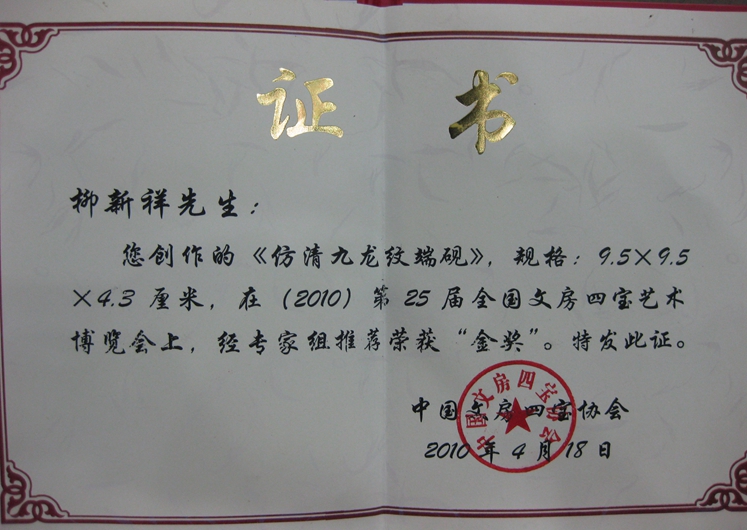 证 书
柳新祥先生：
您创作的《仿清九龙纹端砚》，规格：9.5×9.5
×4.3 厘米，在（2010）第 25 届全国文房四宝艺术
博览会上，经专家组推荐荣获“金奖”。特发此证。
中国文房四宝协会
2010 年 4 月 18 日
中国文房四宝协会